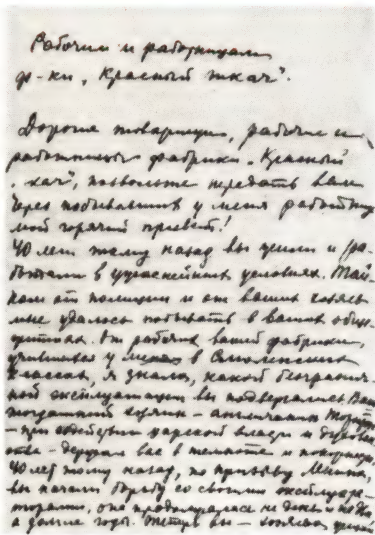 Рабочим и работницам
ф-ки „Красный ткач".
Дорогие товарищи, рабочие и
работницы фабрики „Красный
ткач", позвольте передать вам
через побывавших у меня работниц
мой горячий привет!
40 лет тому назад вы жили и ра-
ботали в ужаснейших условиях. Тай-
ком от полиции и от ваших хозяев
мне удалось побывать в ваших обще-
житиях. От рабочих вашей фабрики,
учившихся у меня в Смоленских
классах, я знала, какой безгранич-
ной эксплуатации вы подвергались. Ваш
тогдашний хозяин - англичанин
- при содействии царской власти и духовен-
ства - держал вас в темноте и
40 лет тому назад, по призыву Ленина,
вы начали борьбу со своими эксплуата-
торами, она продолжалась не день и не два,
а долгие годы. Теперь вы - хозяева